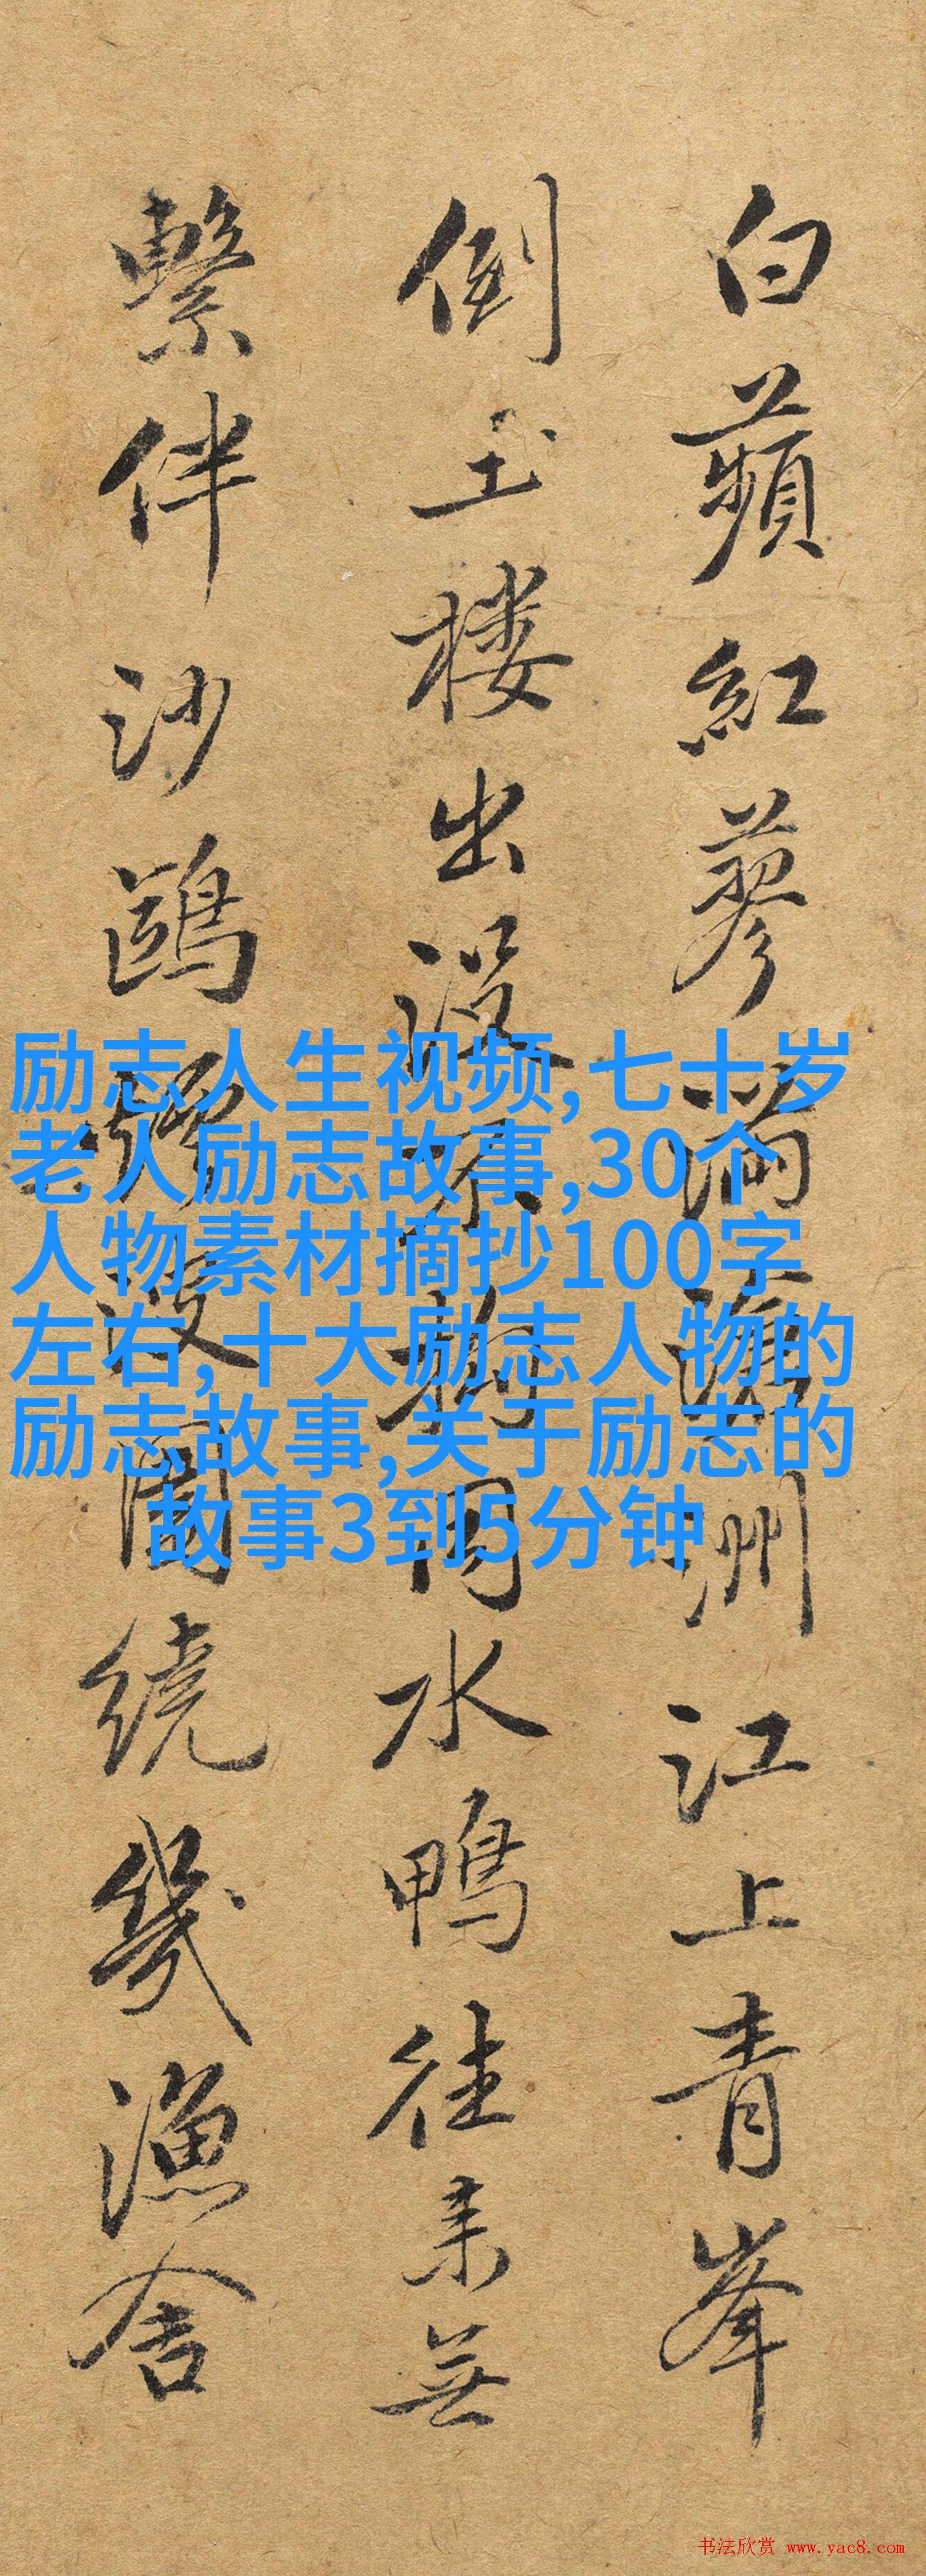 白蘋紅蓼滿洲江上青峯
倒玉楼出没不拘同水鴨往来無
繫伴沙鷗繞幾漁舍
励志人生视频,七十岁
老人励志故事,30个
人物素材摘抄100字
左右,十大励志人物的
励志故事,关于励志的
故事3到5分钟
书法欣赏 www.yac8.com